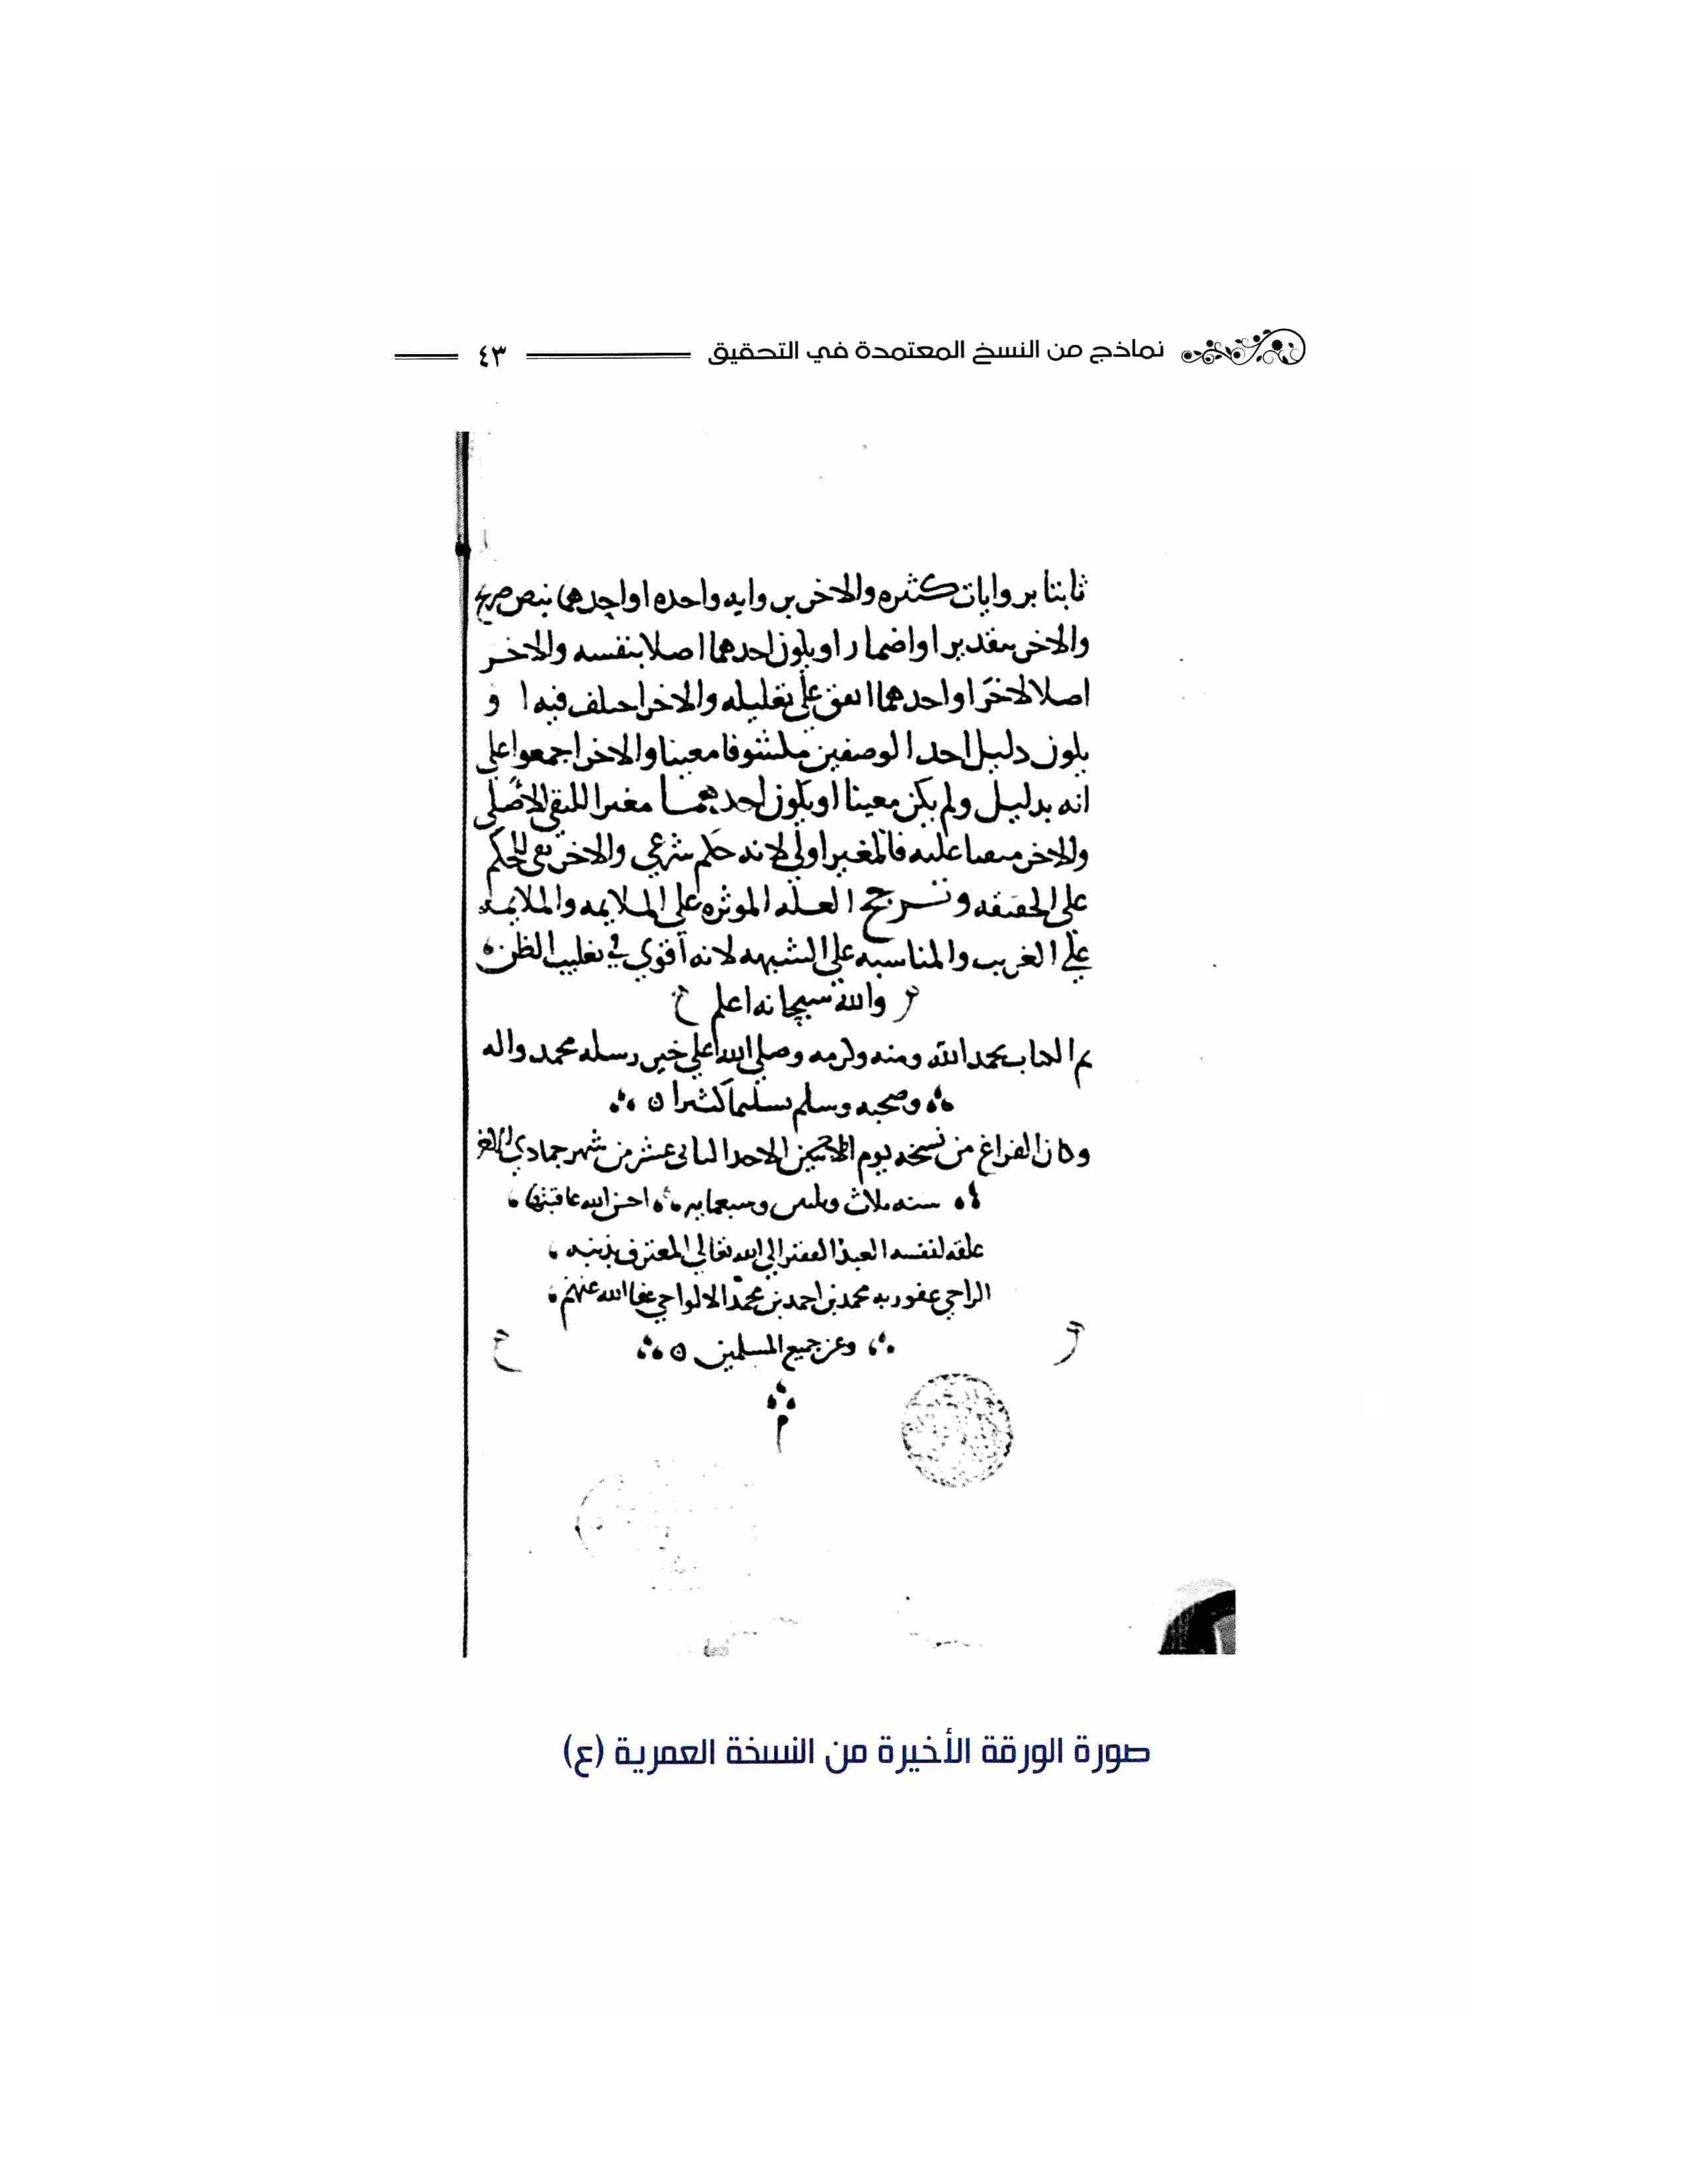 نماذج من النسخ المعتمدة في التحقيق ٤٣
ثابتا بروايات كثيره والاخر بروايه واحده او احدهما بنص صريح
والاخر بتقدير او اضمار او يكون احدهما اصلا بنفسه والاخر
اصلا لاخر او احدهما اتفق على تعليله والاخر اختلف فيه او
يكون دليل احد الوصفين مكشوفا معينا والاخر اجمعوا على
انه بدليل ولم يكن معينا او يكون احدهما مغيرا للنفي الاصلي
والاخر مبقيا عليه فالمغير اولى لانه حكم شرعي والاخر نفي للحكم
على الحقيقه وترجح العله الموثره على الملايمه والملايمه
على الغريب والمناسبه على الشبهيه لانه اقوى في تغليب الظن
والله سبحانه اعلم
تم الكتاب بحمد الله ومنه وكرمه وصلى الله على خير رسله محمد واله
وصحبه وسلم تسليما كثيرا
وكان الفراغ من نسخه يوم الاحد الثاني عشر من شهر جمادى
سنه ثلاث وثلثين وسبعمايه احسن الله عاقبتها
علقه لنفسه العبد الفقير الى الله تعالى المعترف بذنبه
الراجي عفو ربه محمد بن احمد بن محمد الالواحي عفا الله عنهم
وعن جميع المسلمين
صورة الورقة الأخيرة من النسخة العمرية (ع)